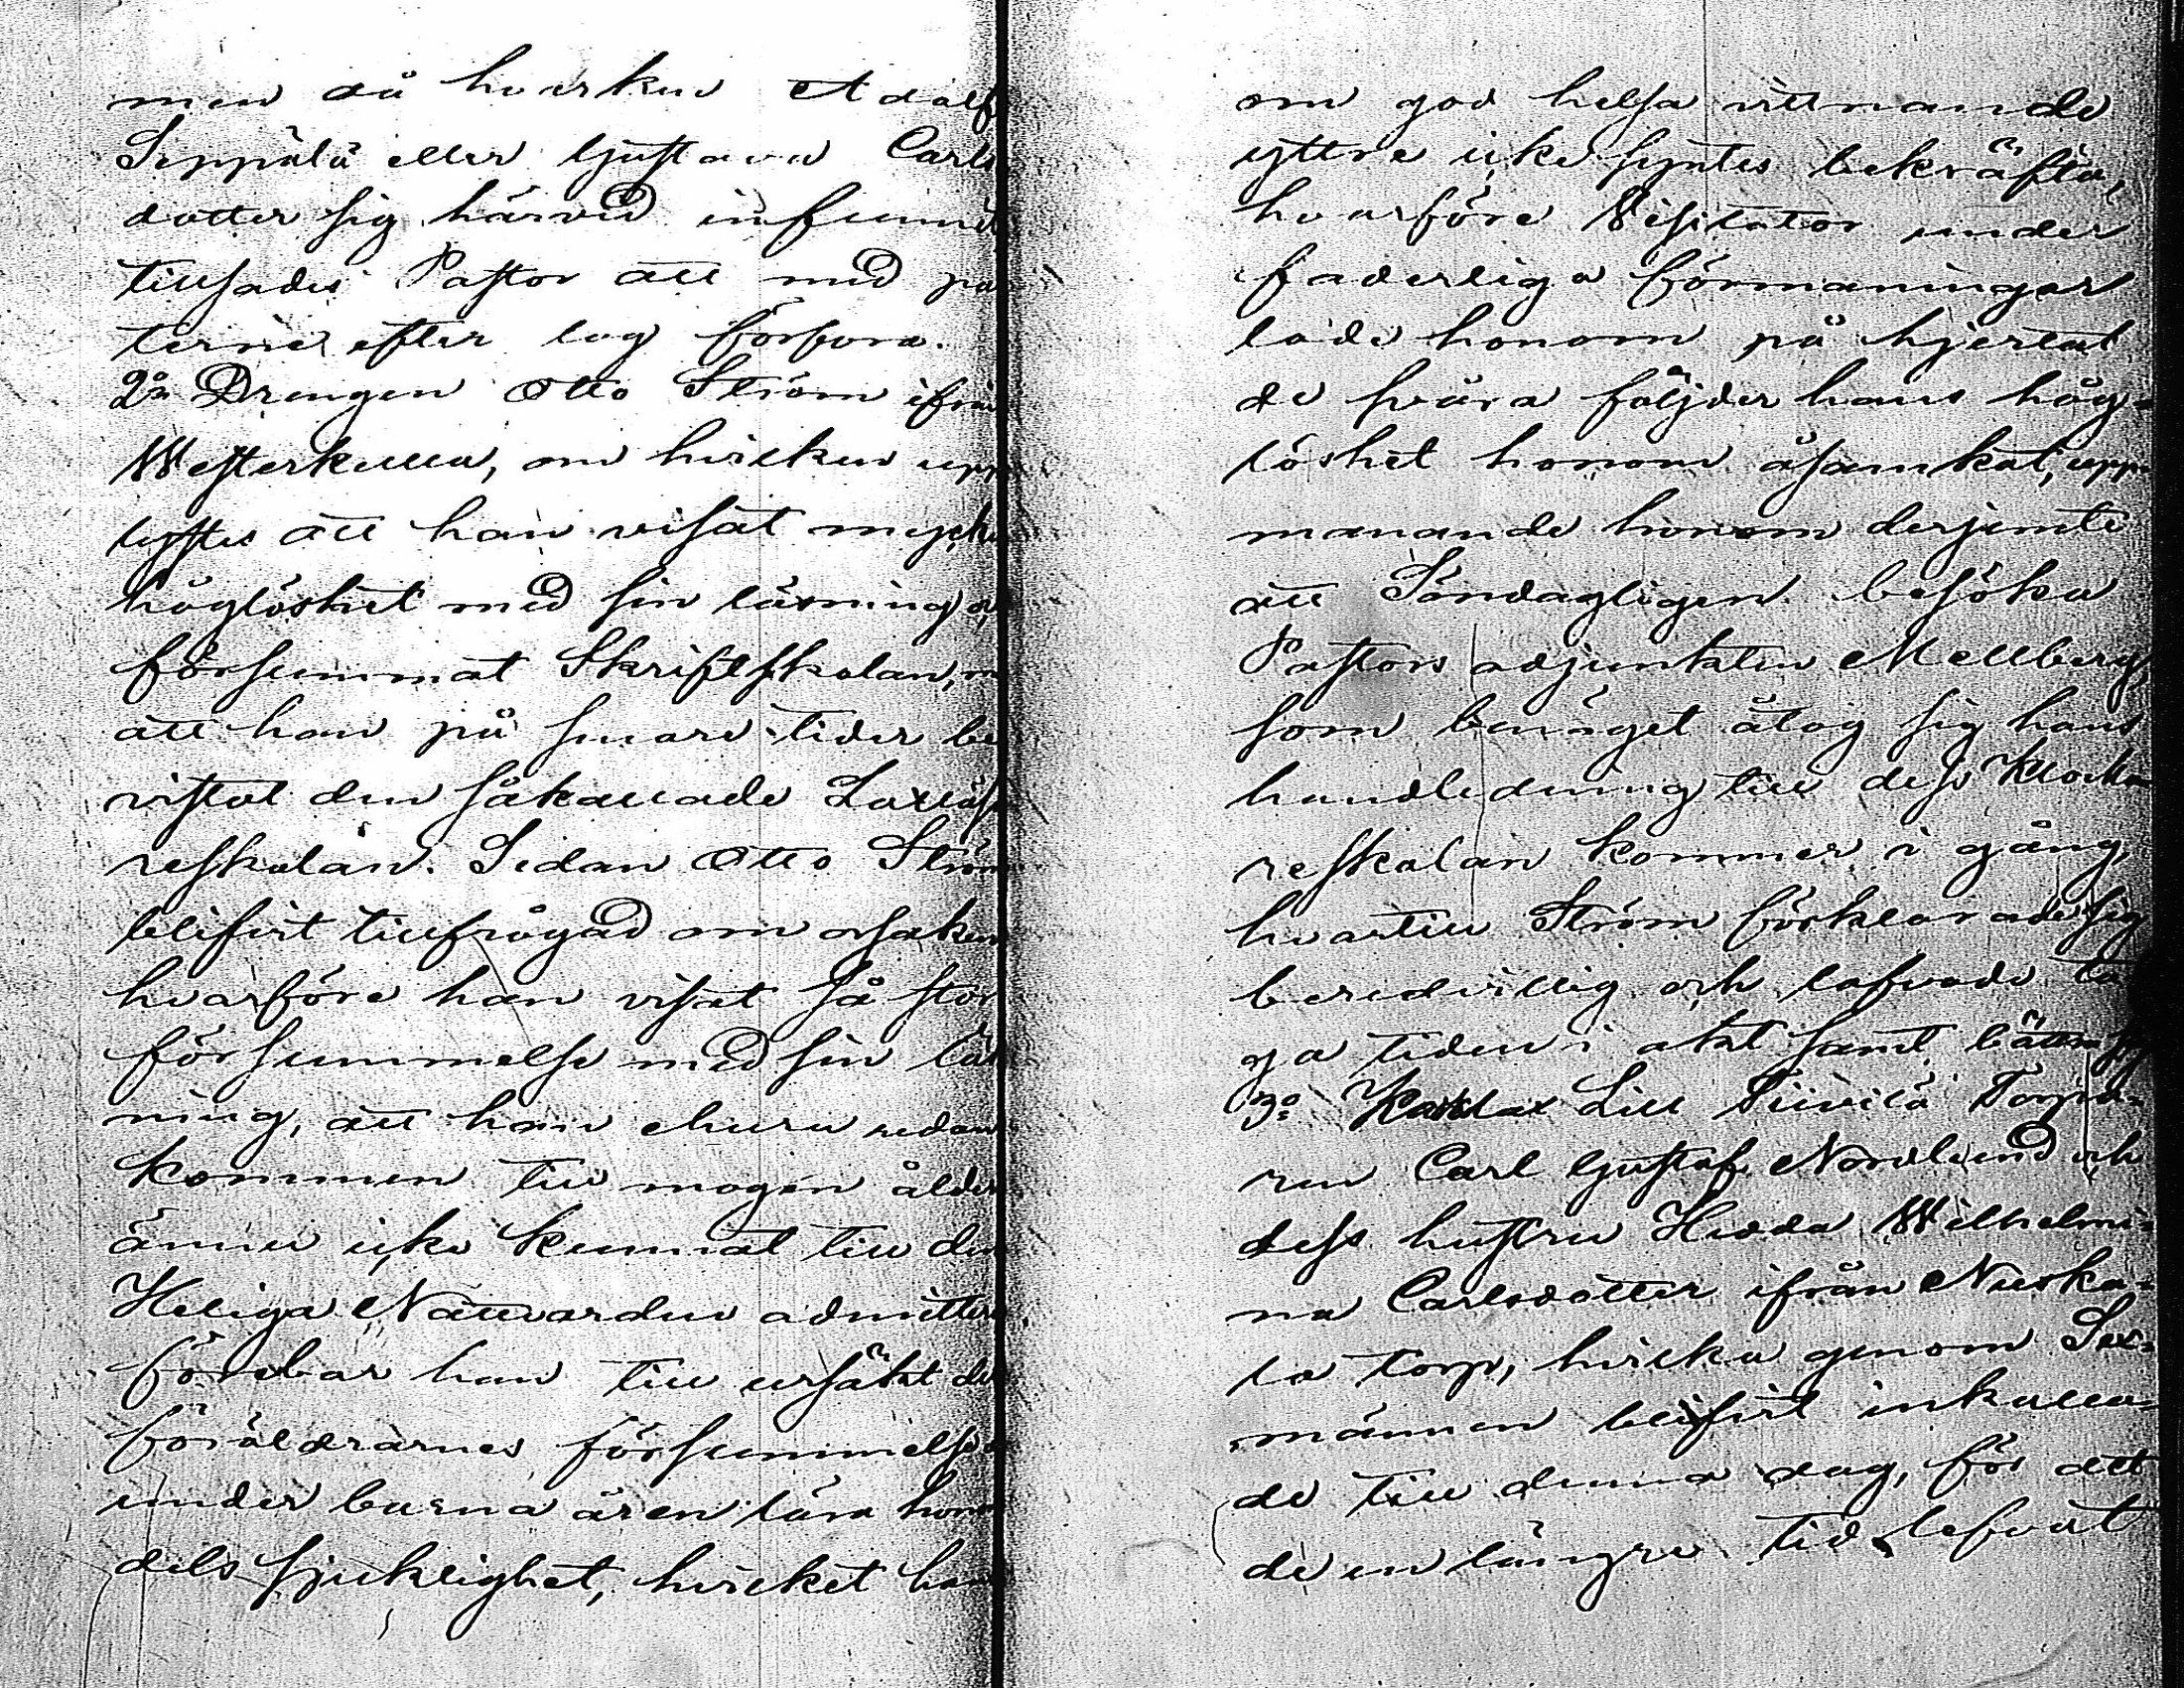 men då hvarken Adolf
Seppälä eller Gustava Carls
dotter sig härvid infunn
tillsades Pastor att med par
terne efter lag förfara.
2:o Drengen Otto Ström ifrån
Westerkulla, om hvilken upp
lystes att han visat mycke
håglöshet med sin läsning o
försummat Skriftskolan, m
att han på senare tider be
vistat den såkallade Laxläse
reskolan. Sedan Otto Ström
blifvit tillfrågad om orsaken
hvarföre han visat så stor
försummelse med sin läs
ning, att han ehuru redan
kommen till mogen ålder
ännu icke kunnat till den
Heliga Nattvarden admitter
förebar han till ursäkt de
föräldrarnes försummelse a
under barna åren lära hono
dels sjuklighet, hvilket han
om god helsa vittnande
yttre icke syntes bekräfta,
hvarföre Visitator under
faderliga förmaningar
lade honom på hjertat
de svåra följder hans håg-
löshet honom åsamkat, upp-
manande honom derjemte
att Söndagligen besöka
Pastors adjunkten Mellberg,
som benäget åtog sig hans
handledning till dess Klocka-
reskolan kommer i gång,
hvartill Ström förklarade sig
beredvillig och lofvade ta-
ga tiden i akt samt bättra sig
3:o Lill Torpa-
ren Carl Gustaf Nordlund och
dess hustru Hedda Wilhelmi-
na Carlsdotter ifrån Nuska-
la torp, hvilka genom Sex-
männen blifvit inkalla-
de till denna dag, för att
de en längre tid lefvat